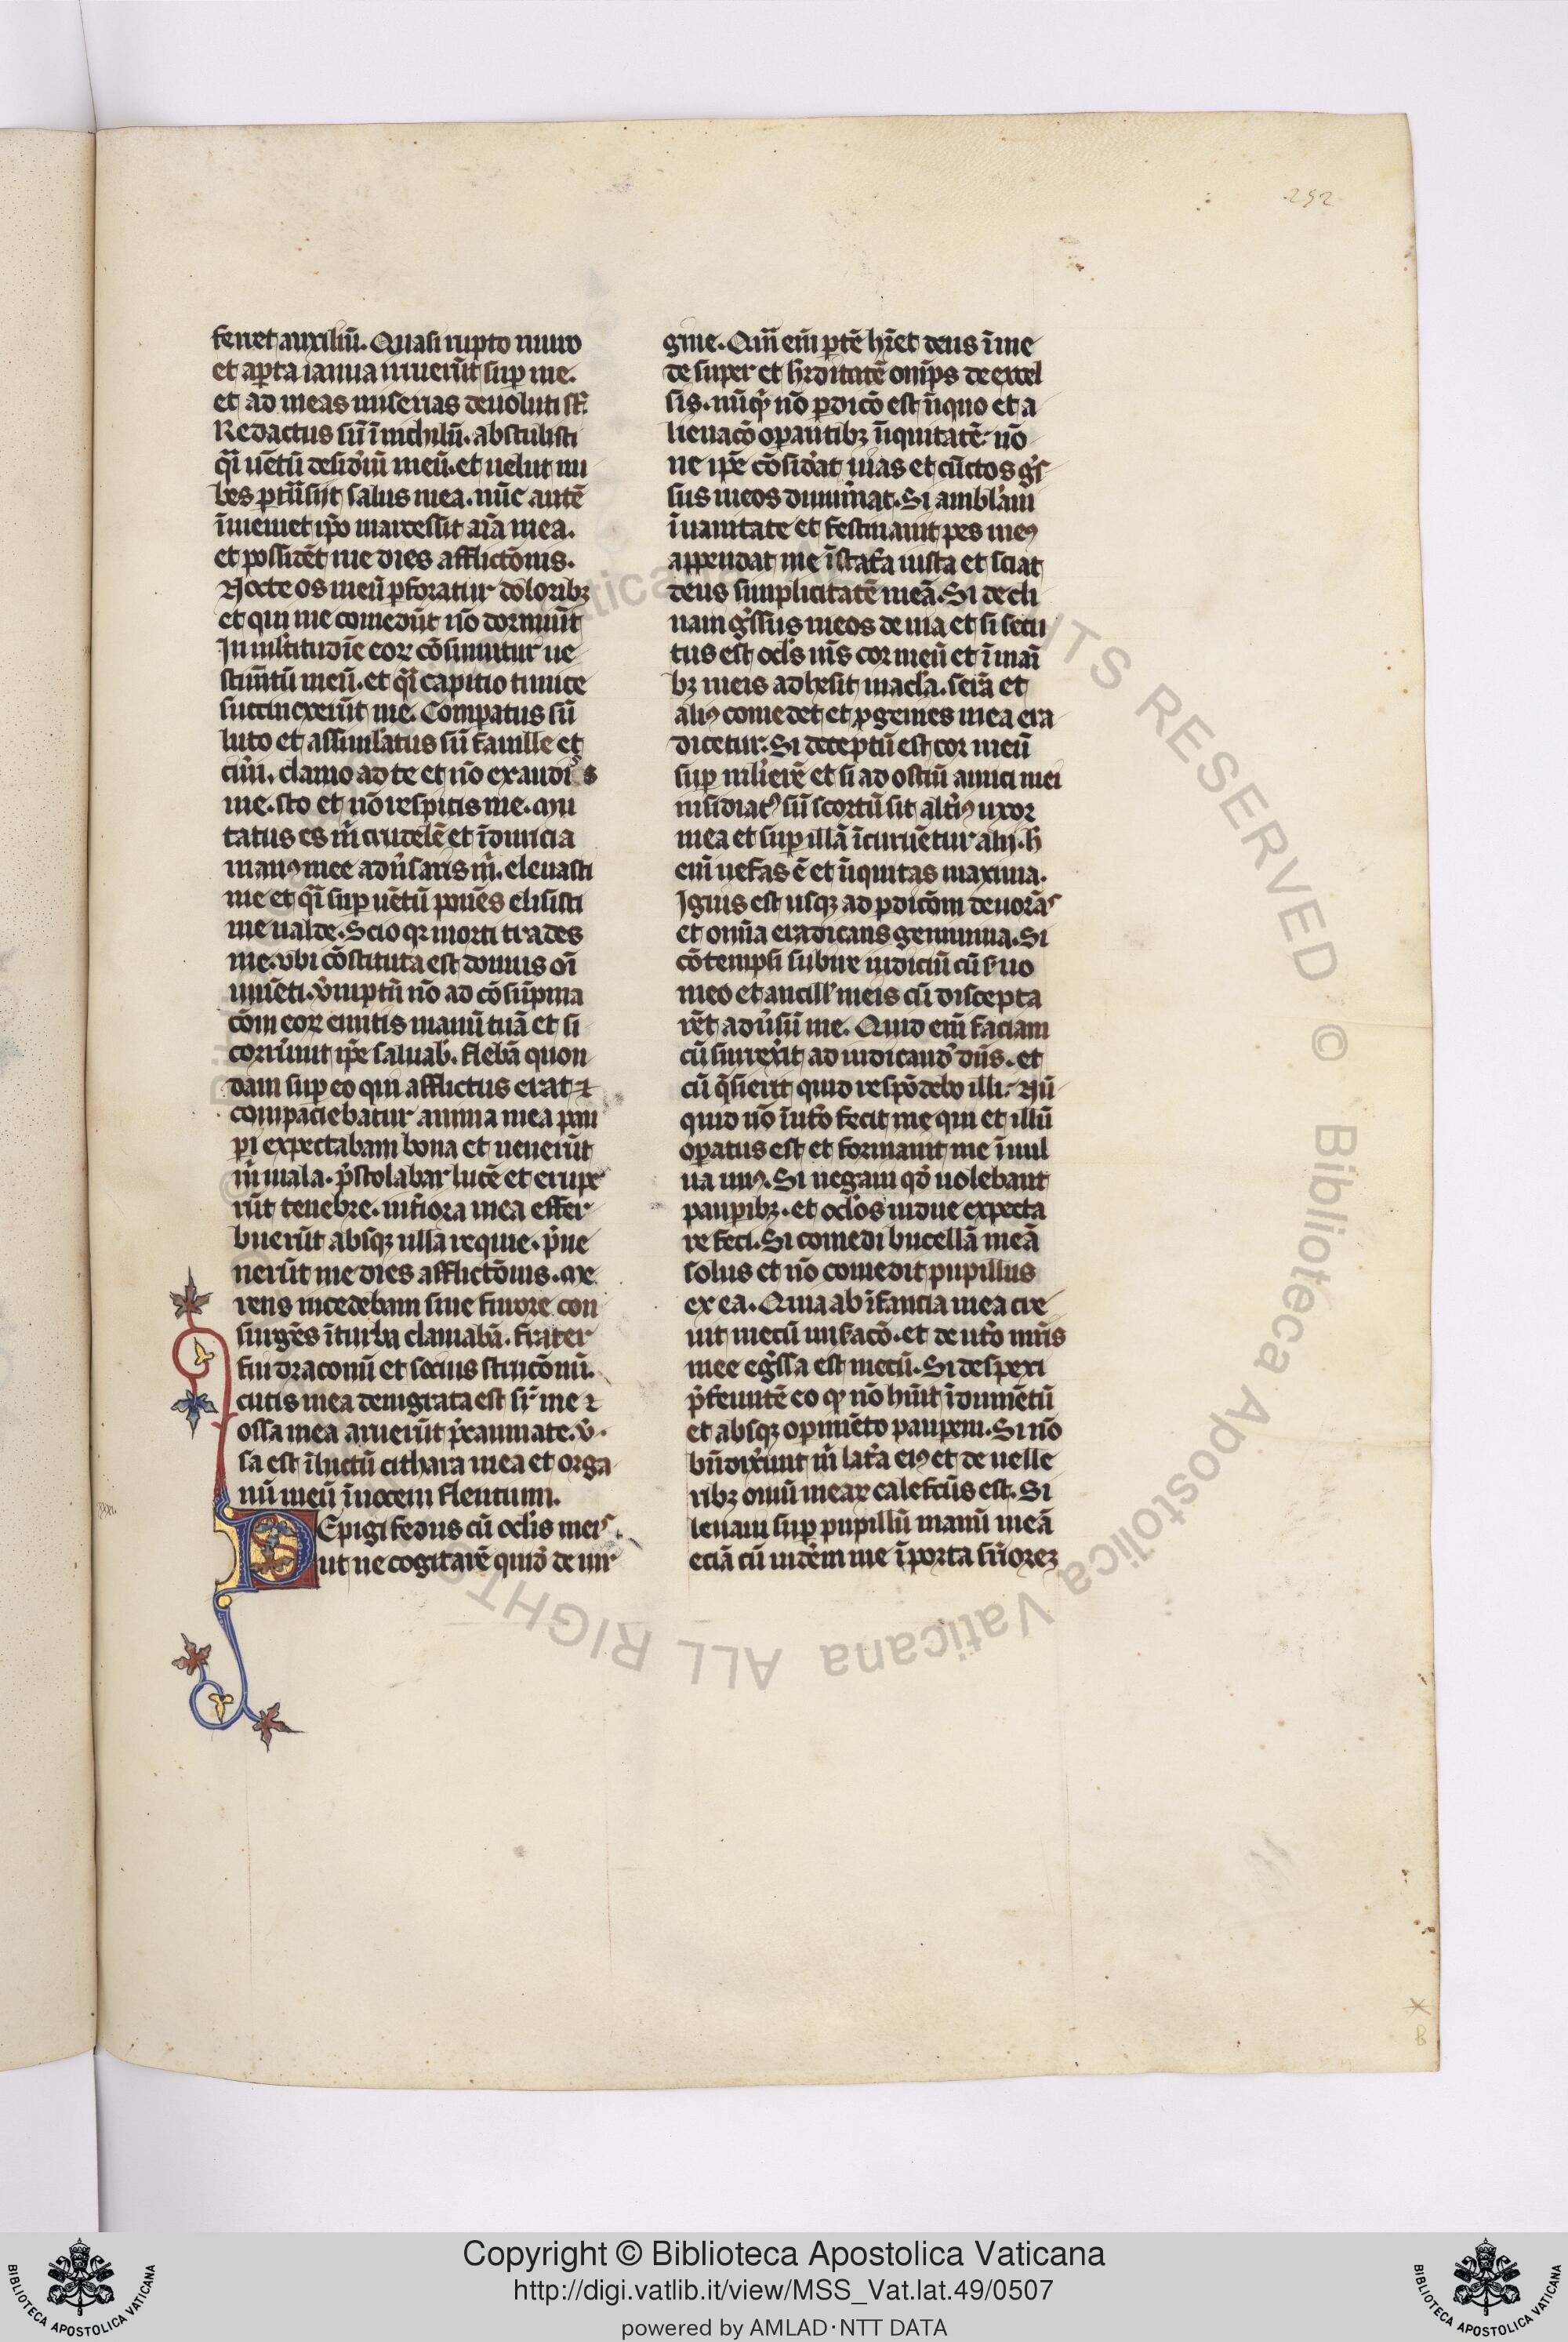 252
ferret auxiliū. Quasi rupto muro
et aꝑta ianua irruerūt suꝑ me.
et ad meas miserias deuoluti sūt.
Redactus sū ī nichilū. abstulisti
q̄i uētū desid'iū meū. et uelut nu
bes ꝑtrāsiit salus mea. nūc autē
ī memet ip̄o marcessit aīa mea.
et possidēt me dies afflictōnis.
Nocte os meū ꝑforatur doloribꝫ
et qui me comedūt nō dormiūt
In ml'titudīe eoꝝ cōsumitur ue
stimtū meū. et q̄i capitio tunice
succinxerūt me. Comꝑatus sū
luto et assimilatus sū fauille et
cin'i. clamo ad te et nō exaudis
me. sto et nō respicis me. mu
tatus es m̄ crudelē et ī duricia
manꝰ mee adūsaris m̄. eleuasti
me et q̄i suꝑ uētū ponēs elisisti
me ualde. Scio qꝛ morti trades
me. vbi cōstituta est domus oī
uiuēti. v̄ūptū nō ad cōsūpma
cōm eoꝝ emittis manū tuā et si
corrūint ip̄e saluab'. flebā quon
dam suꝑ eo qui afflictus erat ⁊
compaciebatur anima mea pau
pi expectabam bona et uenerūt
m̄ mala. p̄stolabar lucē et eruꝑe
rūt tenebre. inf'iora mea effer
buerūt absqꝫ ulla requie. p̄ue
nerūt me dies afflictōnis. Me
rens incedebam sine furore con
surgēs ī turba clamabā. frater
fui draconū et socius strucōnū.
cutis mea denigrata est sr̄ me ⁊
ossa mea aruerūt p̄ caumate. v̄
sa est ī luctū cithara mea et orga
nū meū ī uocem flentium.
DEpigi fedus cū oclīs meis
ut ne cogitarē quid' de uir
gine. Qm̄ eni ꝑtē hr̄et deus ī me
de super et hr̄ditatē omīps de excel
sis. nūqd' nō ꝑdicō est īiquo et a
lienacō oꝑantibꝫ īiquitatē. nō
ne ip̄e cōsid'at uias et cūctos g's
sus meos dinum̄at. Si amblāui
ī uanitate et festinauit pes meꝰ
appendat me ī stat'a iusta et sciat
deus simplicitatē meā. Si decli
nauit g'ssus meos de uia et si secu
tus est ocl's mīs cor meū et ī mani
bꝫ meis adhesit macl'a. serā et
aliꝰ comedet et ꝓgenies mea era
dicetur. Si deceptū est cor meū
suꝑ mlierē et si ad ostiū amici mei
insidiatꝰ sū scortū sit altiꝰ uxor
mea et suꝑ illā īcuruētur alij. h̄
eni nefas ē et īiquitas maxima.
Ignis est usqꝫ ad ꝑdicōm deuorās
et omīa eradicans genimina. Si
cōtempsi subire iudiciū cū s'uo
meo et ancill' meis cū discepta
rēt adūsū me. Quid eni faciam
cū surrex'it ad iudicand' dn̄s. et
cū q̄sierit quid respōdebo illi. Nū
quid nō ī ut'o fecit me qui et illū
oꝑatus est et formauit me ī uul
ua unꝰ. Si negaui qd' uolebant
pauꝑibꝫ. et ocl'os uidue expecta
re feci. Si comedi bucellā meā
solus et nō comedit pupillus
ex ea. Quia ab īfancia mea cre
uit mecū misacō. et de ut'o mr̄is
mee eg'ssa est mecū. Si despexi
p̄teruntē eo qd' nō hūit īdumētū
et absqꝫ oꝑimēto pauꝑem. Si nō
bn̄dix'unt m̄ lat'a eiꝰ et de uelle
ribꝫ ouiū meaꝝ calefctūs est. Si
leuaui suꝑ pupillū manū meā
eciā cū uidē'm me ī porta sūiorēꝫ
Copyright © Biblioteca Apostolica Vaticana
http://digi.vatlib.it/view/MSS_Vat.lat.49/0507
powered by AMLAD·NTT DATA